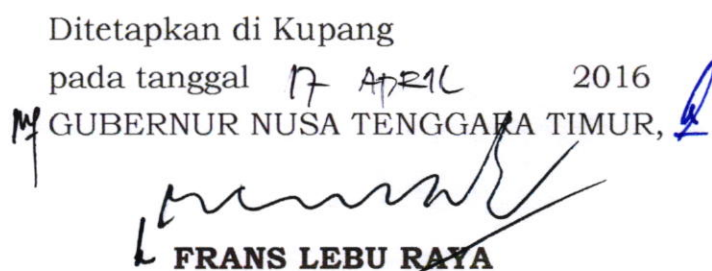 Ditetapkan di Kupang
pada tanggal 17 APRIL 2016
GUBERNUR NUSA TENGGARA TIMUR,
FRANS LEBU RAYA